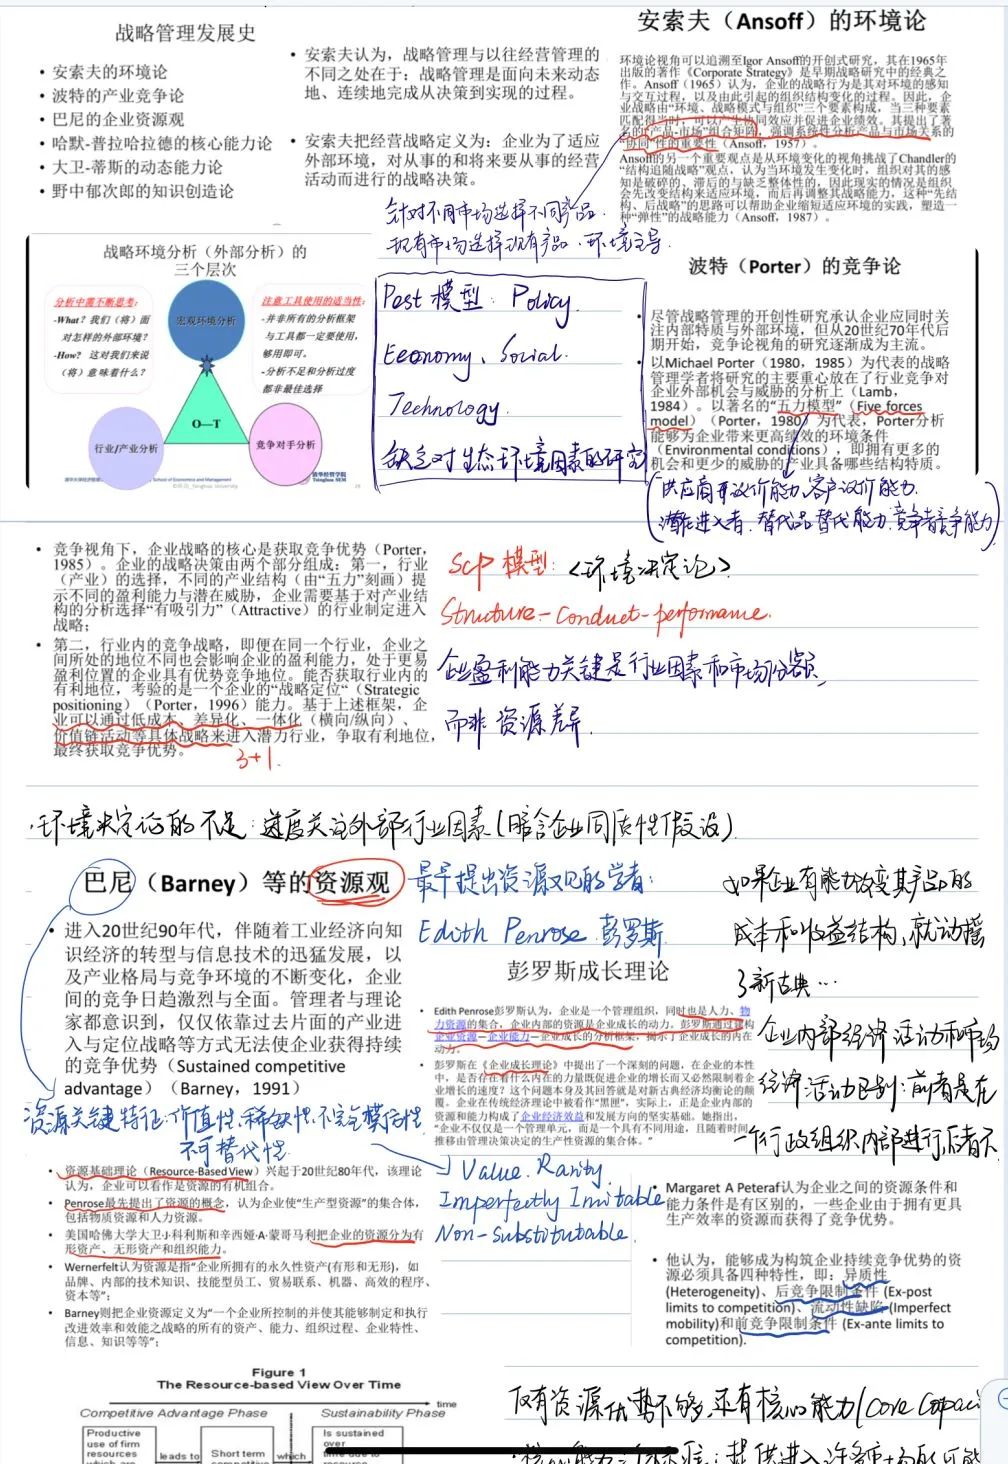 战略管理发展史
• 安索夫的环境论
• 波特的产业竞争论
• 巴尼的企业资源观
• 哈默-普拉哈拉德的核心能力论
• 大卫-蒂斯的动态能力论
• 野中郁次郎的知识创造论
• 安索夫认为，战略管理与以往经营管理的
不同之处在于：战略管理是面向未来动态
地、连续地完成从决策到实现的过程。
• 安索夫把经营战略定义为：企业为了适应
外部环境，对从事的和将来要从事的经营
活动而进行的战略决策。
安索夫（Ansoff）的环境论
环境论视角可以追溯至Igor Ansoff的开创式研究，其在1965年
出版的著作《Corporate Strategy》是早期战略研究中的经典之
作。Ansoff（1965）认为，企业的战略行为是其对环境的感知
与交互过程，以及由此引起的组织结构变化的过程。因此，企
业战略由“环境、战略模式与组织”三个要素构成，当三种要素
匹配得当时，可以产生协同效应并促进企业绩效。其提出了著
名的“产品-市场”组合矩阵，强调系统性分析产品与市场关系的
“协同”性的重要性（Ansoff，1957）。
Ansoff的另一个重要观点是从环境变化的视角挑战了Chandler的
“结构追随战略”观点，认为当环境发生变化时，组织对其的感
知是破碎的、滞后的与缺乏整体性的，因此现实的情况是组织
会先改变结构来适应环境，而后再调整其战略能力，这种“先结
构、后战略”的思路可以帮助企业缩短适应环境的实践，塑造一
种“弹性”的战略能力（Ansoff，1987）。
针对不同市场选择不同产品.
现有市场选择现有产品，环境主导.
战略环境分析（外部分析）的
三个层次
分析中需不断思考：
-What？我们（将）面
对怎样的外部环境？
-How？ 这对我们来说
（将）意味着什么？
宏观环境分析
注意工具使用的适当性：
-并非所有的分析框架
与工具都一定要使用，
够用即可。
-分析不足和分析过度
都非最佳选择
O—T
行业/产业分析
竞争对手分析
清华经管学院
Tsinghua SEM
Pest 模型：Policy.
Economy、Social.
Technology.
缺乏对生态环境因素的研究
波特（Porter）的竞争论
• 尽管战略管理的开创性研究承认企业应同时关
注内部特质与外部环境，但从20世纪70年代后
期开始，竞争论视角的研究逐渐成为主流。
• 以Michael Porter（1980，1985）为代表的战略
管理学者将研究的主要重心放在了行业竞争对
企业外部机会与威胁的分析上（Lamb，
1984）。以著名的“五力模型”（Five forces
model）（Porter，1980）为代表，Porter分析
能够为企业带来更高绩效的环境条件
（Environmental conditions），即拥有更多的
机会和更少的威胁的产业具备哪些结构特质。
供应商议价能力，客户议价能力.
潜在进入者，替代品替代能力，竞争者竞争能力
• 竞争视角下，企业战略的核心是获取竞争优势（Porter，
1985）。企业的战略决策由两个部分组成：第一，行业
（产业）的选择，不同的产业结构（由“五力”刻画）提
示不同的盈利能力与潜在威胁，企业需要基于对产业结
构的分析选择“有吸引力”（Attractive）的行业制定进入
战略；
• 第二，行业内的竞争战略，即便在同一个行业，企业之
间所处的地位不同也会影响企业的盈利能力，处于更易
盈利位置的企业具有优势竞争地位。能否获取行业内的
有利地位，考验的是一个企业的“战略定位”（Strategic
positioning）（Porter，1996）能力。基于上述框架，企
业可以通过低成本、差异化、一体化（横向/纵向）、
价值链活动等具体战略来进入潜力行业，争取有利地位，
最终获取竞争优势。
3+1.
Scp 模型：<环境决定论>
Structure-Conduct-performance.
企业盈利能力关键是行业因素和市场份额，
而非资源差异.
·环境决定论的不足：过度关注外部行业因素（暗含企业同质性假设）.
巴尼（Barney）等的资源观
• 进入20世纪90年代，伴随着工业经济向知
识经济的转型与信息技术的迅猛发展，以
及产业格局与竞争环境的不断变化，企业
间的竞争日趋激烈与全面。管理者与理论
家都意识到，仅仅依靠过去片面的产业进
入与定位战略等方式无法使企业获得持续
的竞争优势（Sustained competitive
advantage）（Barney，1991）
最早提出资源观的学者：
Edith Penrose 彭罗斯
彭罗斯成长理论
• Edith Penrose彭罗斯认为，企业是一个管理组织，同时也是人力、物
力资源的集合，企业内部的资源是企业成长的动力。彭罗斯通过建构
企业资源—企业能力—企业成长的分析框架，揭示了企业成长的内在
动力。
• 彭罗斯在《企业成长理论》中提出了一个深刻的问题，在企业的本性
中，是否存在着什么内在的力量既促进企业的增长而又必然限制着企
业增长的速度？这个问题本身及其回答就是对新古典经济均衡论的颠
覆。企业在传统经济理论中被看作“黑匣”，实际上，正是企业内部的
资源和能力构成了企业经济效益和发展方向的坚实基础。她指出，
“企业不仅仅是一个管理单元，而是一个具有不同用途，且随着时间
推移由管理决策决定的生产性资源的集合体。”
如果企业有能力改变其产品的
成本和收益结构，就动摇
了新古典…
企业内部经济活动和市场
经济活动区别：前者是在
一个行政组织内部进行，后者不
资源关键特征：价值性、稀缺性、不完全模仿性
不可替代性.
Value. Rarity.
Imperfectly Imitable
Non-substitutable.
• 资源基础理论（Resource-Based View）兴起于20世纪80年代，该理论
认为，企业可以看作是资源的有机组合。
• Penrose最先提出了资源的概念，认为企业使“生产型资源”的集合体，
包括物质资源和人力资源。
• 美国哈佛大学大卫·J·科利斯和辛西娅·A·蒙哥马利把企业的资源分为有
形资产、无形资产和组织能力。
• Wernerfelt认为资源是指“企业所拥有的永久性资产(有形和无形)，如
品牌、内部的技术知识、技能型员工、贸易联系、机器、高效的程序、
资本等”；
• Barney则把企业资源定义为“一个企业所控制的并使其能够制定和执行
改进效率和效能之战略的所有的资产、能力、组织过程、企业特性、
信息、知识等等”；
• Margaret A Peteraf认为企业之间的资源条件和
能力条件是有区别的，一些企业由于拥有更具
生产效率的资源而获得了竞争优势。
• 他认为，能够成为构筑企业持续竞争优势的资
源必须具备四种特性，即：异质性
(Heterogeneity)、后竞争限制条件 (Ex-post
limits to competition)、流动性缺陷 (Imperfect
mobility)和前竞争限制条件 (Ex-ante limits to
competition).
Figure 1
The Resource-based View Over Time
time
Competitive Advantage Phase
Sustainability Phase
Productive
use of firm
resources
which are
leads to
Short term
competitive
which
Is sustained
over
仅有资源优势不够，还有核心能力(Core Capaci